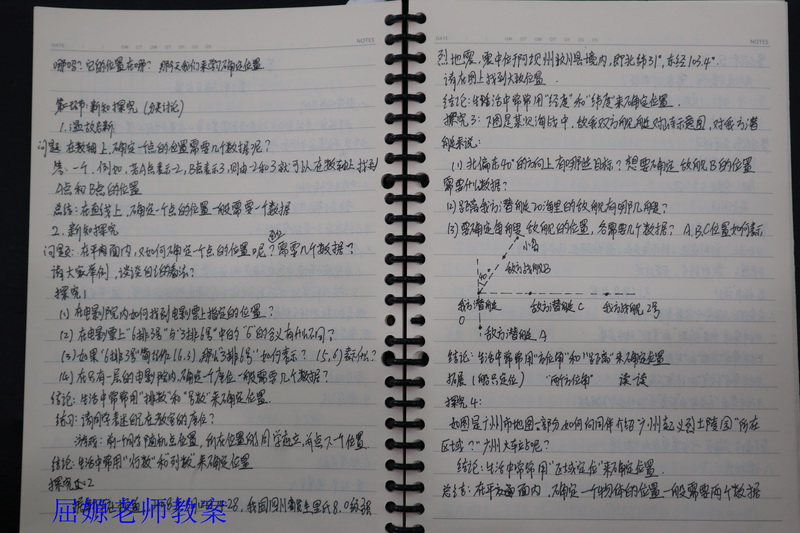 DATE
NOTES
哪吗？它的位置在哪？那今天我们来学习确定位置
第二环节：新知探究（分类讨论）
1. 温故知新
问题：在数轴上，确定一点的位置需要几个数据呢？
答：一个，例如，若A点表示-2，B点表示3，则由-2和3就可以在数轴上找到
A点和B点的位置
总结：在直线上，确定一个点的位置一般需要一个数据
2. 新知探究
问题：在平面内，又如何确定一个点的位置呢？需要几个数据？
请大家举例，谈谈自己的看法？
探究1
(1) 在电影院内如何找到电影票上指定的位置？
(2) 在电影票上“6排3号”与“3排6号”中的“6”的含义有什么不同？
(3) 如果“6排3号”简记作(6,3)，那么“3排6号”如何表示？(5,6)表示什么？
(4) 在只有一层的电影院内，确定一个座位一般需要几个数据？
结论：生活中常常用“排数”和“号数”来确定位置
练习：请同学表述自己在教室的座位？
结论：生活中常用“行数”和“列数”来确定位置
探究2
屈嫄老师教案
我国四川省发生里氏8.0级强
DATE
NOTES
烈地震，震中位于阿坝州汶川县境内，即北纬31°，东经103.4°.
请在图上找到大致位置.
结论：生活中常常用“经度”和“纬度”来确定位置.
探究3：下图是某次海战中，敌我双方舰艇对峙示意图，对我方潜
艇来说：
(1) 北偏东40°的方向上有哪些目标？想要确定敌舰B的位置
需要什么数据？
(2) 距离我方潜艇20海里的敌舰有哪几艘？
(3) 要确定每艘敌舰的位置，各需要几个数据？A、B、C位置如何表示
小岛
敌方战舰B
我方潜艇
敌方潜艇C
我方战舰2号
O
敌方潜艇A
结论：生活中常常用“方位角”和“距离”来确定位置
拓展（船只定位）
谈一谈
探究4：
如图是广州市地图一部分，如何向同伴介绍“广州起义烈士陵园”所在
区域？“广州火车站”呢？
结论：生活中常常用“区域定位”来确定位置.
总结：在平面内，确定一个物体的位置一般需要两个数据